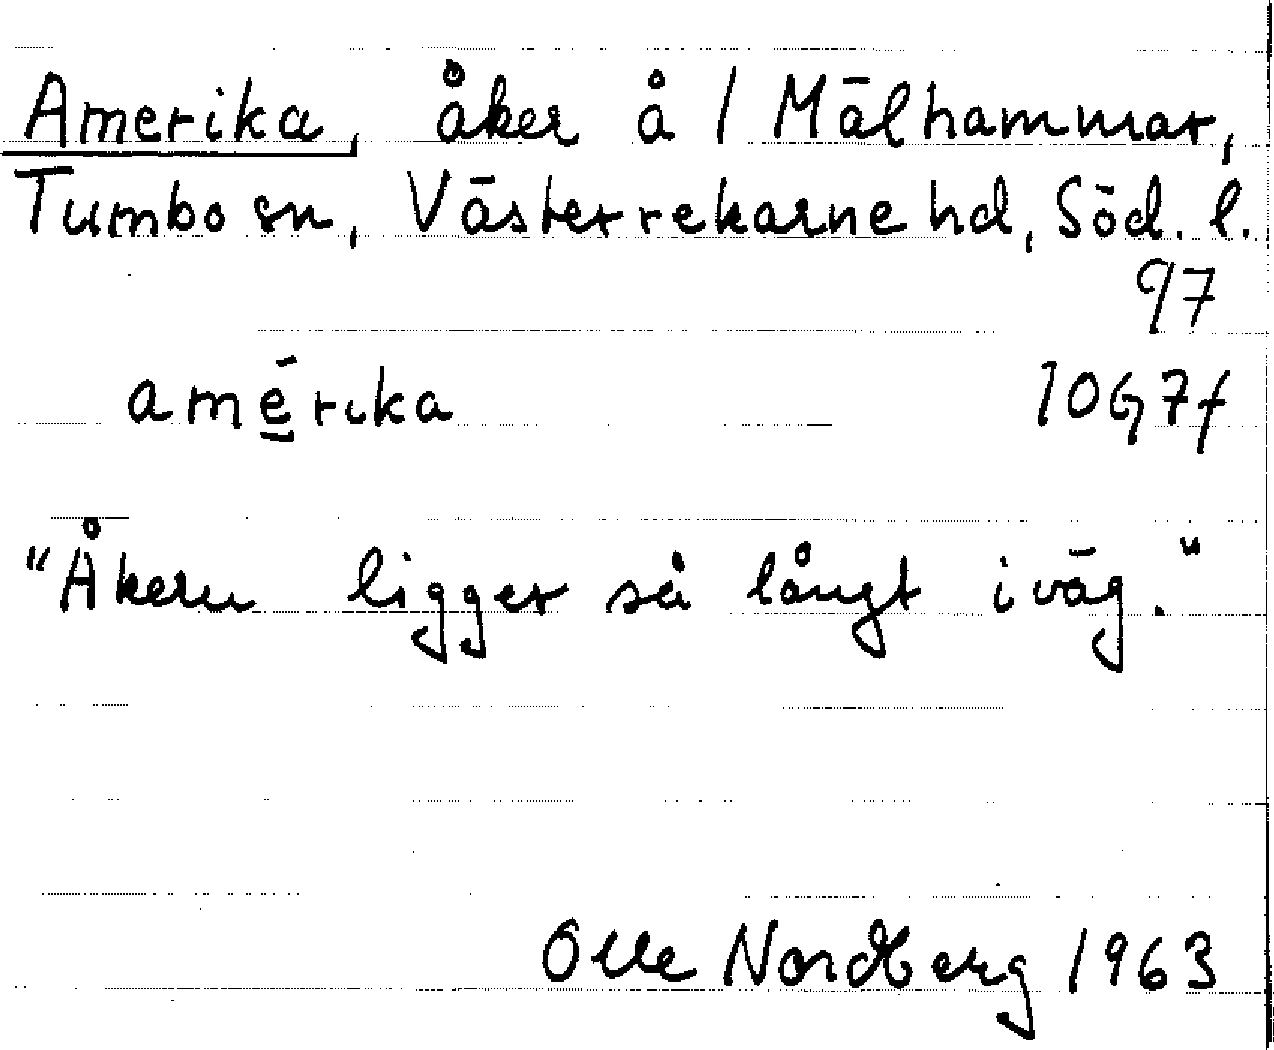 Amerika, åker å / Mälhammar,
Tumbo sn, Västerrekarne hd, Söd. l.
97
amérika 10G7f
"Åkern ligger så långt iväg."
Olle Nordberg 1963